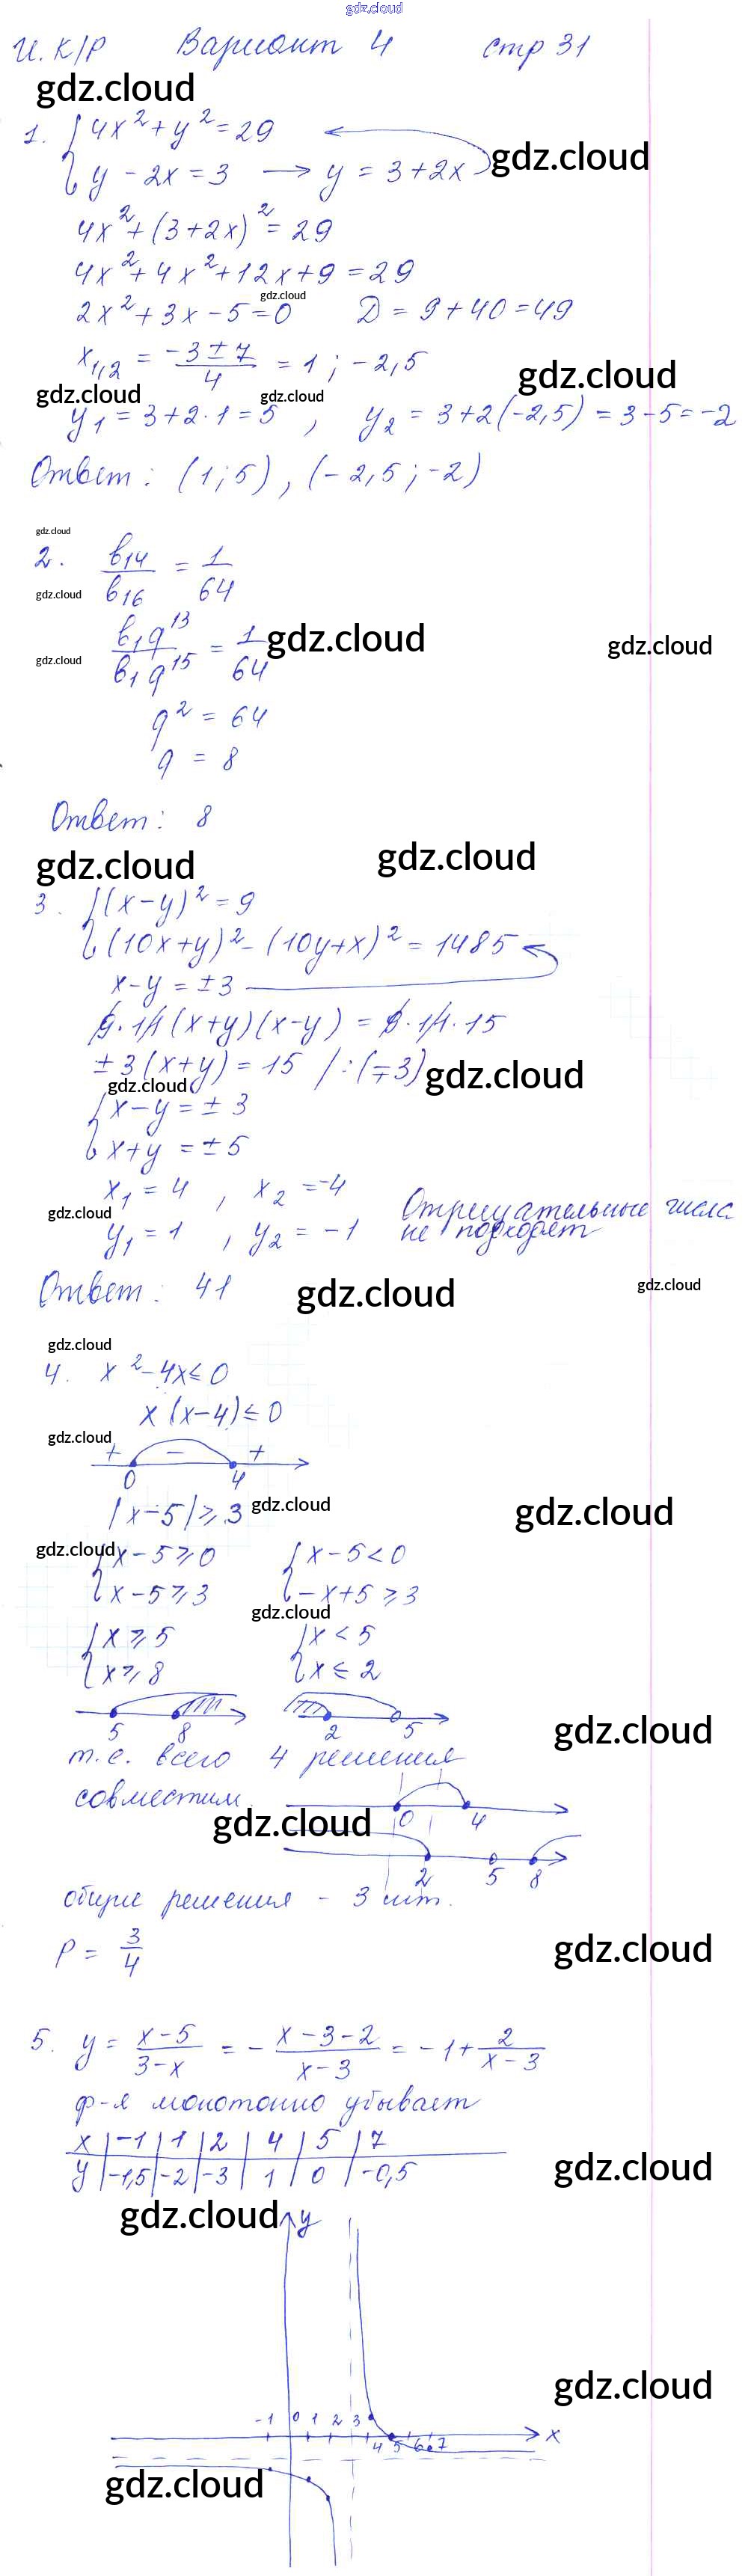 gdz.cloud
И. К/Р Вариант 4 стр 31
gdz.cloud
1. { 4x² + y² = 29
{ y - 2x = 3 → y = 3 + 2x gdz.cloud
4x² + (3 + 2x)² = 29
4x² + 4x² + 12x + 9 = 29
gdz.cloud
2x² + 3x - 5 = 0 D = 9 + 40 = 49
x₁,₂ = (-3 ± 7)/4 = 1 ; -2,5
gdz.cloud gdz.cloud gdz.cloud
y₁ = 3 + 2·1 = 5 , y₂ = 3 + 2(-2,5) = 3 - 5 = -2
Ответ : (1; 5) , (-2,5 ; -2)
gdz.cloud
2. b₁₄/b₁₆ = 1/64
gdz.cloud
b₁q¹³/b₁q¹⁵ = 1/64 gdz.cloud gdz.cloud
gdz.cloud
q² = 64
q = 8
Ответ : 8
gdz.cloud gdz.cloud
3. { (x-y)² = 9
{ (10x+y)² - (10y+x)² = 1485
x - y = ±3
9·11 (x+y)(x-y) = 9·11·15
±3 (x+y) = 15 / : (∓3) gdz.cloud
gdz.cloud
{ x - y = ±3
{ x + y = ±5
x₁ = 4 , x₂ = -4 Отрицательные числа
gdz.cloud
y₁ = 1 , y₂ = -1 не подходят
Ответ : 41 gdz.cloud gdz.cloud
gdz.cloud
4. x² - 4x ≤ 0
x (x-4) ≤ 0
gdz.cloud
+ - +
0 4
|x-5| ≥ 3 gdz.cloud gdz.cloud
gdz.cloud
{ x - 5 ≥ 0 { x - 5 < 0
{ x - 5 ≥ 3 { -x + 5 ≥ 3
gdz.cloud
{ x ≥ 5 { x < 5
{ x ≥ 8 { x ≤ 2
5 8 2 5 gdz.cloud
т.е. всего 4 решения
совместим
gdz.cloud 0 4
2 5 8
общие решения - 3 шт.
P = 3/4 gdz.cloud
5. y = (x-5)/(3-x) = - (x-3-2)/(x-3) = -1 + 2/(x-3)
ф-я монотонно убывает
x | -1 | 1 | 2 | 4 | 5 | 7
y | -1,5 | -2 | -3 | 1 | 0 | -0,5 gdz.cloud
gdz.cloud y
gdz.cloud
-1 0 1 2 3 4 5 6 7 x
gdz.cloud